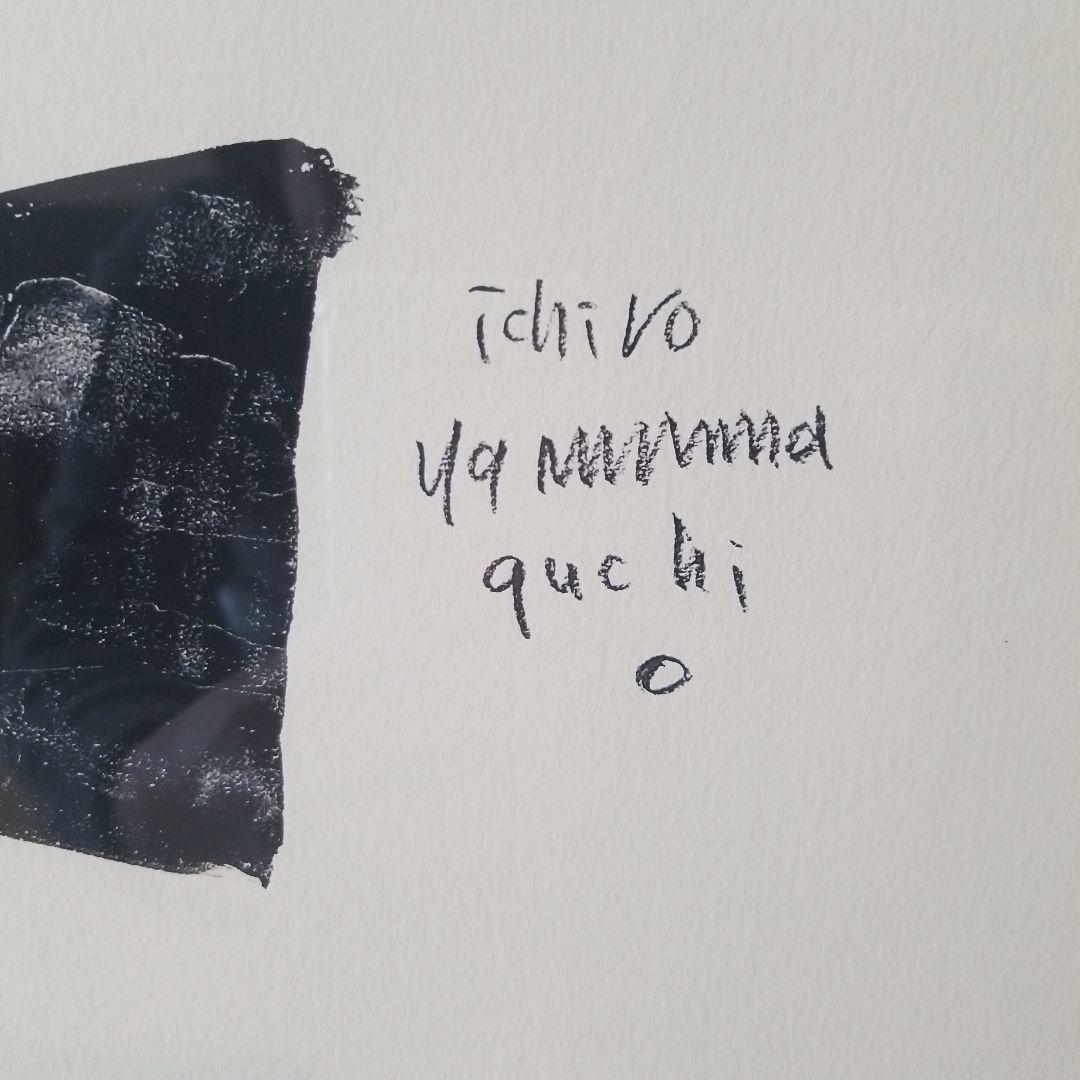 ichiro
ya mmmma
guchi
o